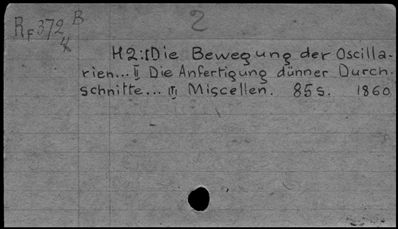 RF 372 B
4
2
H2: I Die Bewegung der Oscilla-
rien... II Die Anfertigung dünner Durch-
schnitte... III Miscellen. 85 s. 1860